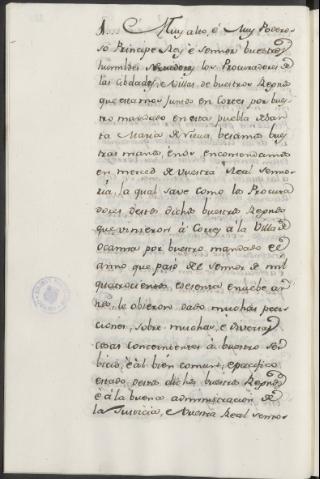 1.... Muy alto, é Muy Podero-
so Principe Rey, é Señor buestros
humildes los Procuradores de
las Cibdades, é Villas de buestros Regnos
que estamos Juntos en Cortes por bues
tro mandado en esta puebla de San
ta Maria de Nieva, besamos bues
tras manos, é nos encomendamos
en merced de Vuestra Real Senno-
ria, la qual save como los Procura
dores destos dichos buestros Regnos
que vinieron á Cortes á la Villa de
Ocanna por buestro mandado el
anno que pasó del Sennor de mil
quatrocientos é sesenta é nuebe an-
nos, le obieron dado muchas peti-
ciones, sobre muchas, é diversas
cosas concernientes á buestro ser-
bicio, é al bien comun, é pacifico
estado destos dichos buestros Regnos
é á la buena administracion de
la Justicia, é Vuestra Real Sennor-